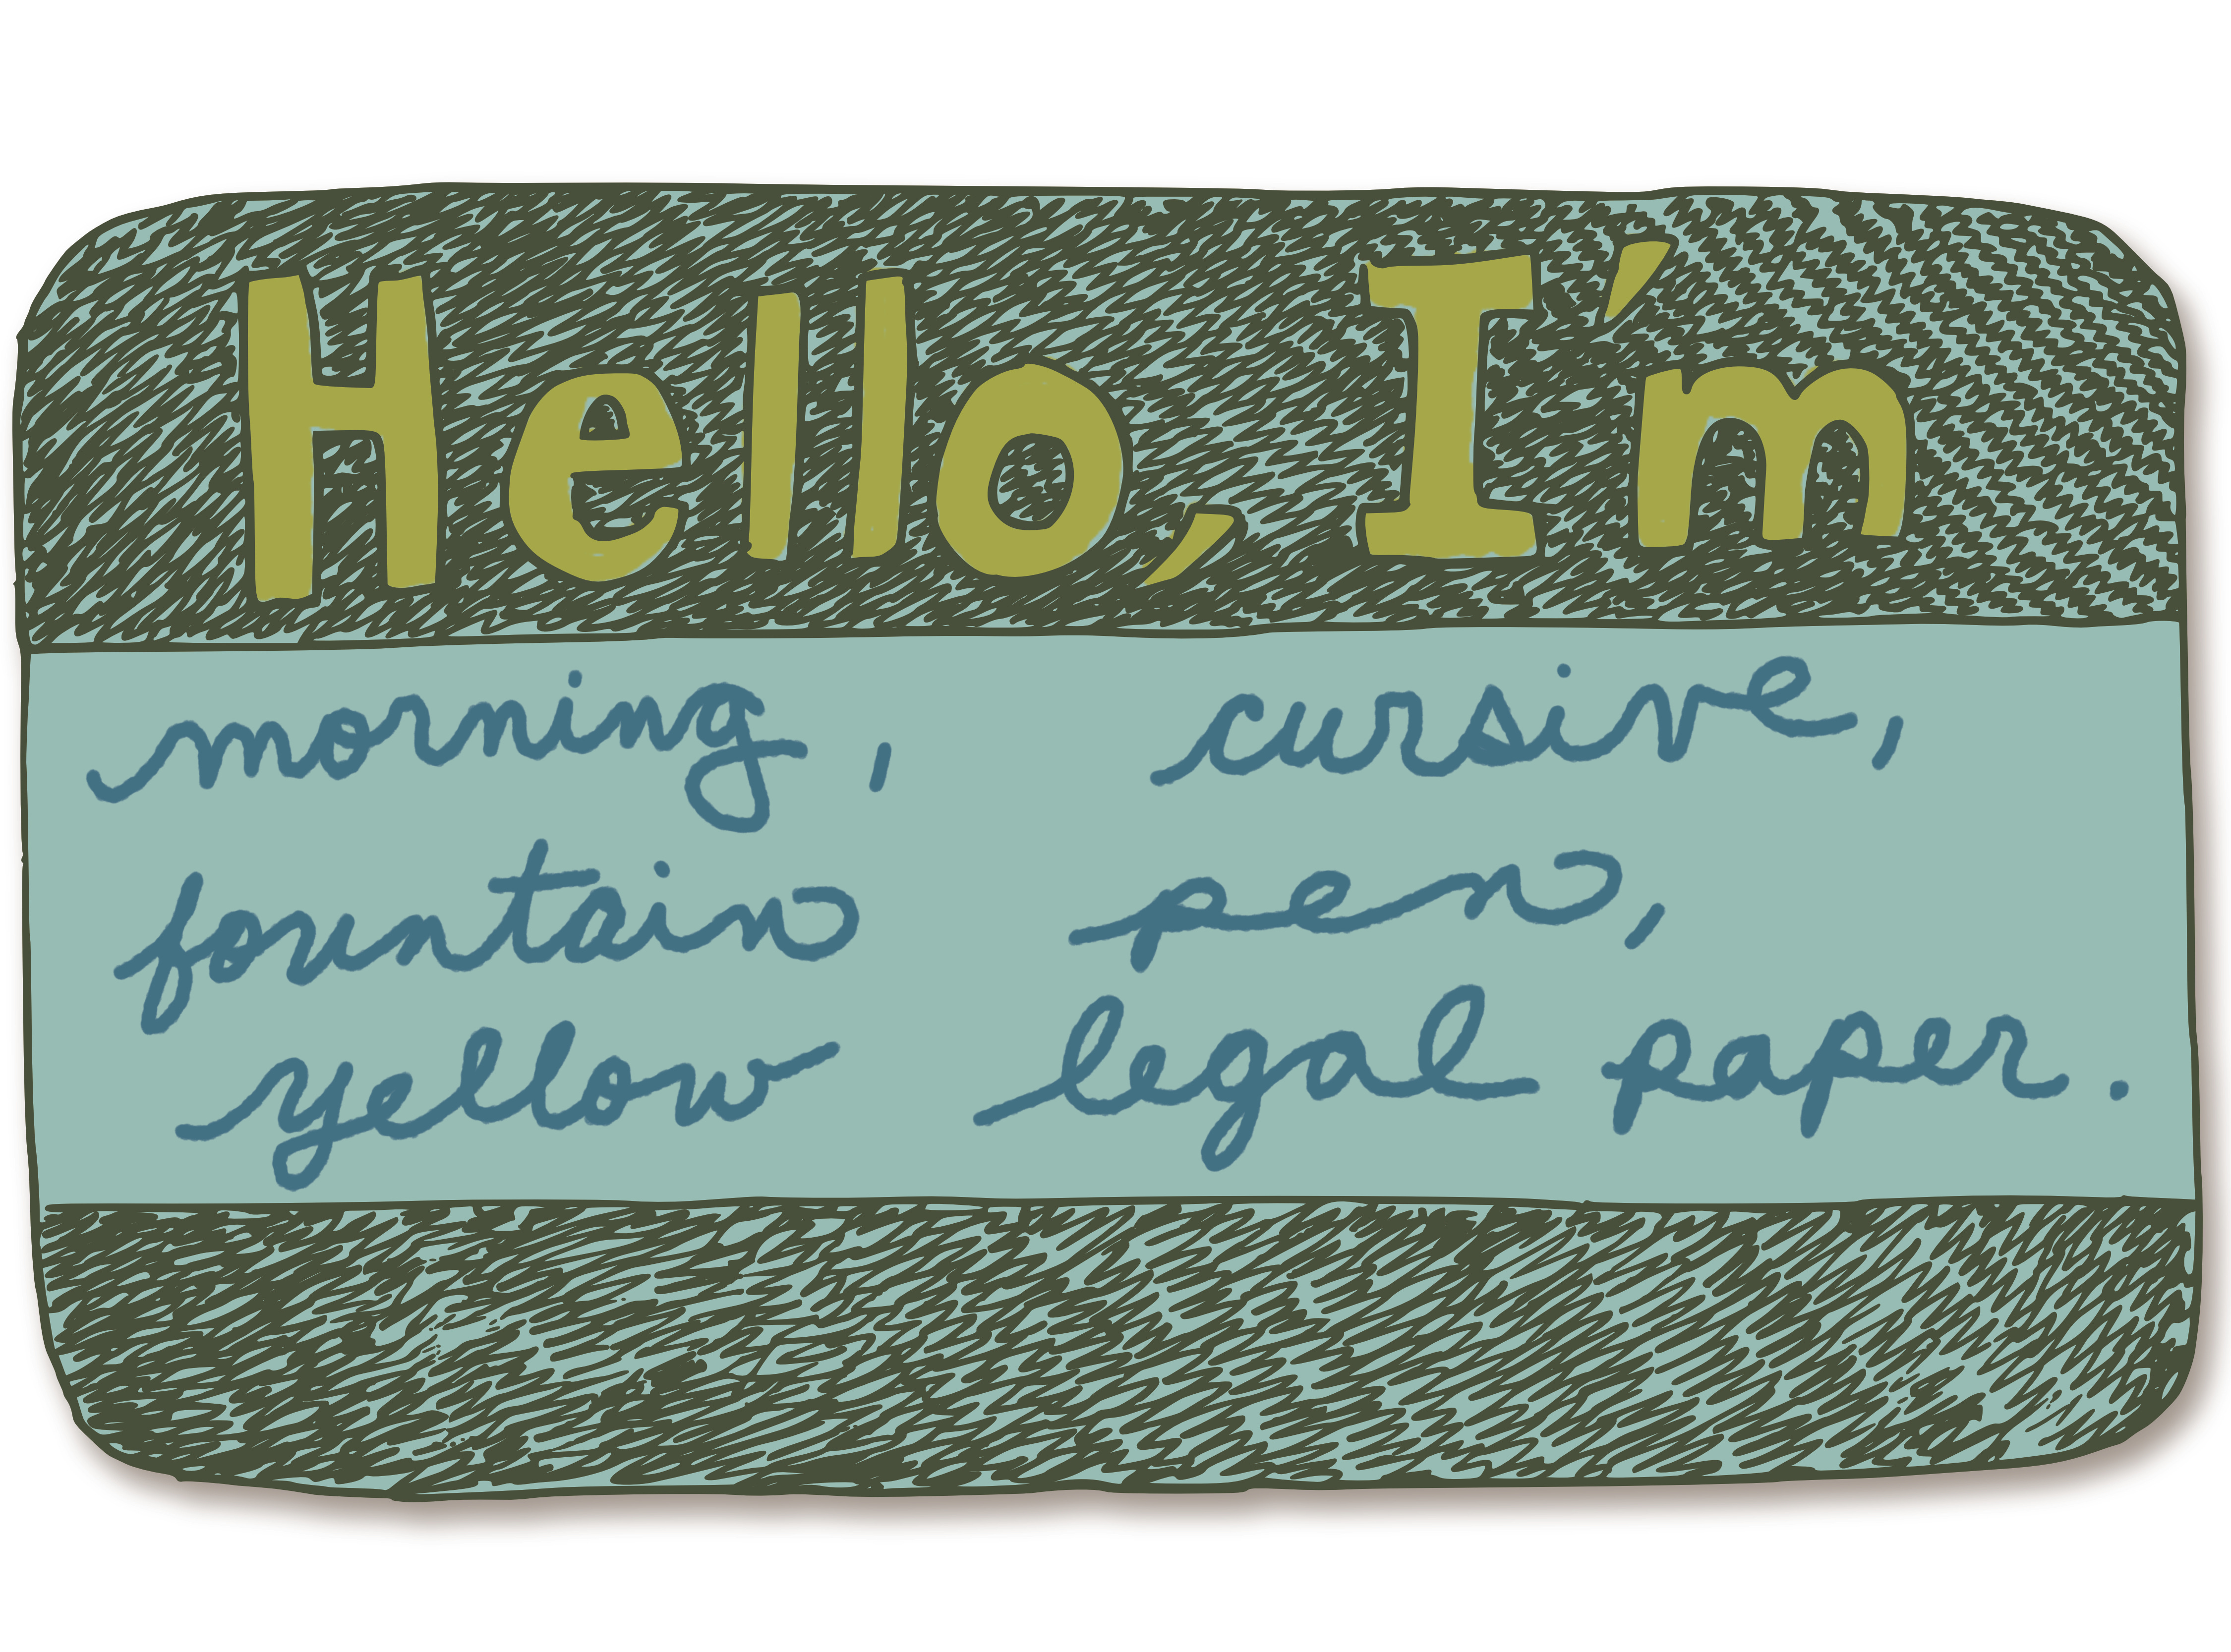 Hello, I'm
morning, cursive,
fountain pen,
yellow legal paper.